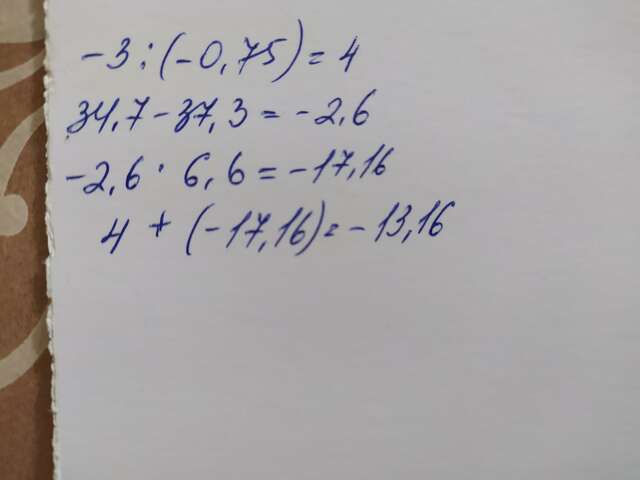 -3:(-0,75)=4
34,7-37,3=-2,6
-2,6·6,6=-17,16
4+(-17,16)=-13,16